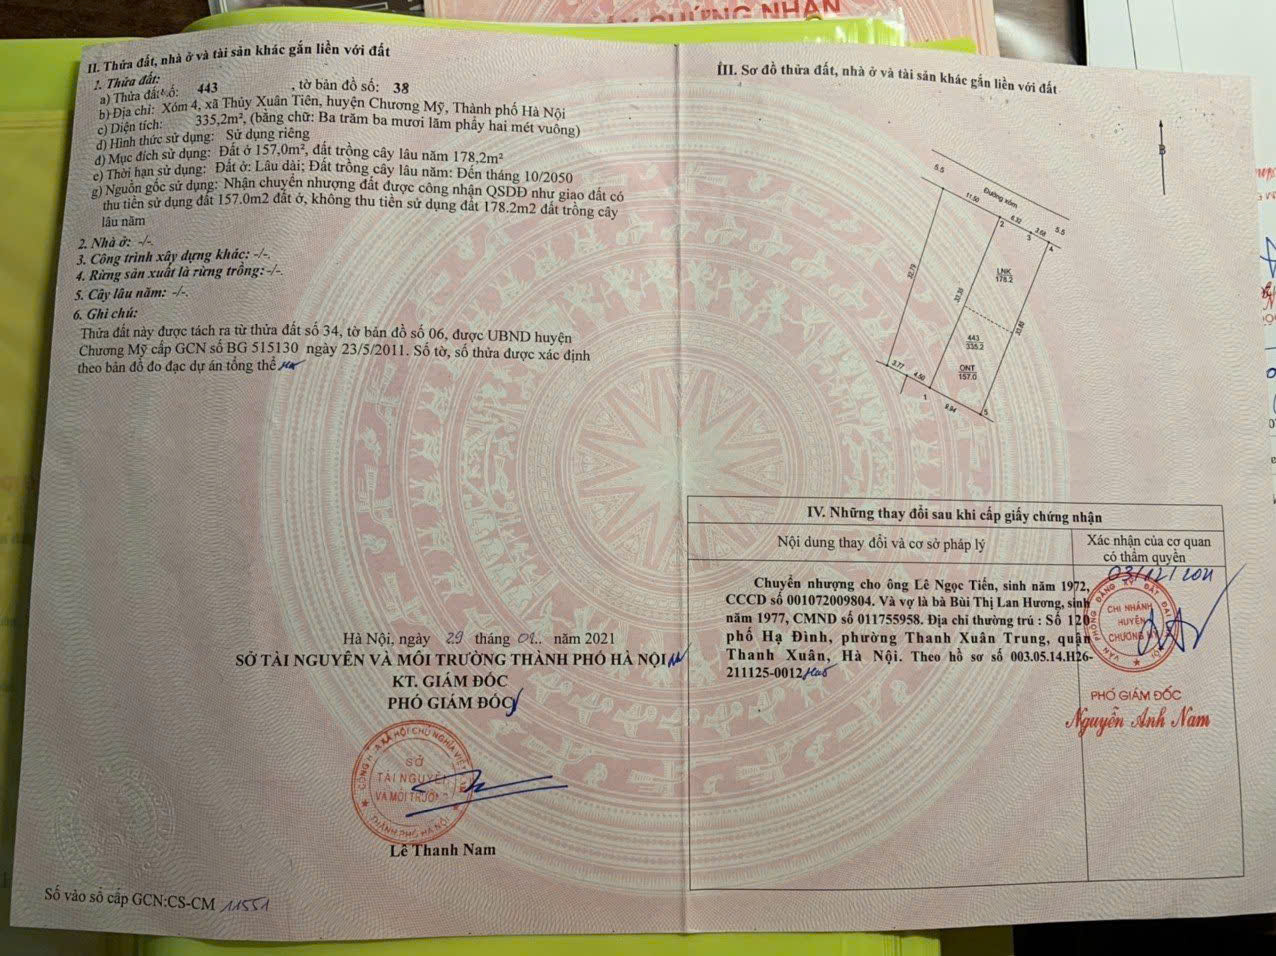 GIẤY CHỨNG NHẬN
II. Thửa đất, nhà ở và tài sản khác gắn liền với đất
1. Thửa đất:
a) Thửa đất số: 443 , tờ bản đồ số: 38
b) Địa chỉ: Xóm 4, xã Thủy Xuân Tiên, huyện Chương Mỹ, Thành phố Hà Nội
c) Diện tích: 335,2m², (bằng chữ: Ba trăm ba mươi lăm phẩy hai mét vuông)
d) Hình thức sử dụng: Sử dụng riêng
đ) Mục đích sử dụng: Đất ở 157,0m², đất trồng cây lâu năm 178,2m²
e) Thời hạn sử dụng: Đất ở: Lâu dài; Đất trồng cây lâu năm: Đến tháng 10/2050
g) Nguồn gốc sử dụng: Nhận chuyển nhượng đất được công nhận QSDĐ như giao đất có
thu tiền sử dụng đất 157.0m2 đất ở, không thu tiền sử dụng đất 178.2m2 đất trồng cây
lâu năm
2. Nhà ở: -/-.
3. Công trình xây dựng khác: -/-.
4. Rừng sản xuất là rừng trồng:-/-.
5. Cây lâu năm: -/-.
6. Ghi chú:
Thửa đất này được tách ra từ thửa đất số 34, tờ bản đồ số 06, được UBND huyện
Chương Mỹ cấp GCN số BG 515130 ngày 23/5/2011. Số tờ, số thửa được xác định
theo bản đồ đo đạc dự án tổng thể
Hà Nội, ngày 29 tháng 01.. năm 2021
SỞ TÀI NGUYÊN VÀ MÔI TRƯỜNG THÀNH PHỐ HÀ NỘI
KT. GIÁM ĐỐC
PHÓ GIÁM ĐỐC
SỞ
TÀI NGUYÊN
VÀ MÔI TRƯỜNG
THÀNH PHỐ HÀ NỘI
Lê Thanh Nam
Số vào sổ cấp GCN:CS-CM 11551
III. Sơ đồ thửa đất, nhà ở và tài sản khác gắn liền với đất
B
5.5
Đường xóm
11.50
6.32
3.68
5.5
2
3
4
LNK
178.2
32.79
33.35
33.88
443
335.2
ONT
157.0
3.77
4.50
1
9.94
5
IV. Những thay đổi sau khi cấp giấy chứng nhận
Nội dung thay đổi và cơ sở pháp lý
Xác nhận của cơ quan
có thẩm quyền
Chuyển nhượng cho ông Lê Ngọc Tiến, sinh năm 1972,
CCCD số 001072009804. Và vợ là bà Bùi Thị Lan Hương, sinh
năm 1977, CMND số 011755958. Địa chỉ thường trú : Số 120
phố Hạ Đình, phường Thanh Xuân Trung, quận
Thanh Xuân, Hà Nội. Theo hồ sơ số 003.05.14.H26-
211125-0012
03/12/2021
VĂN PHÒNG ĐĂNG KÝ ĐẤT ĐAI
CHI NHÁNH
HUYỆN
CHƯƠNG MỸ
PHÓ GIÁM ĐỐC
Nguyễn Anh Nam